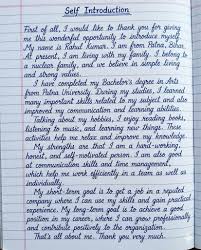 Self Introduction
First of all, I would like to thank you for giving
me this wonderful opportunity to introduce myself.
My name is Rahul Kumar. I am from Patna, Bihar.
At present, I am living with my family. I belong to
a nuclear family, and we believe in simple living
and strong values.
I have completed my Bachelor's degree in Arts
from Patna University. During my studies, I learned
many important skills related to my subject and also
improved my communication and learning abilities.
Talking about my hobbies, I enjoy reading books,
listening to music, and learning new things. These
activities help me relax and improve my knowledge.
My strengths are that I am a hard-working,
honest, and self-motivated person. I am also good
at communication skills and time management,
which help me work efficiently in a team as well as
individually.
My short-term goal is to get a job in a reputed
company where I can use my skills and gain practical
experience. My long-term goal is to achieve a good
position in my career, where I can grow professionally
and contribute positively to the organization.
That's all about me. Thank you very much.